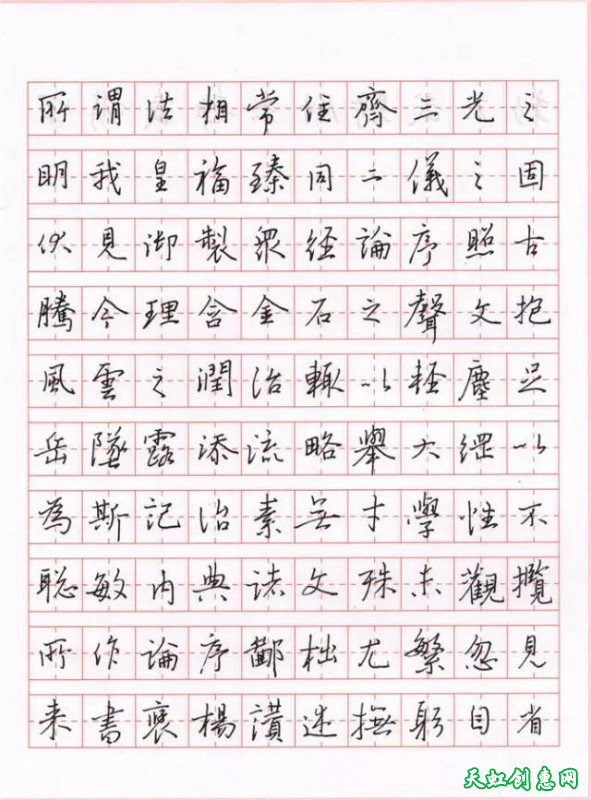 所謂法相常住齊三光之
明我皇福臻同二儀之固
伏見御製眾經論序照古
騰今理含金石之聲文抱
風雲之潤治輒以輕塵足
岳墜露添流略舉大綱以
為斯記治素無才學性不
聪敏内典諸文殊未觀攬
所作論序鄙拙尤繁忽見
来書褒楊讃述撫躬自省
天虹创惠网